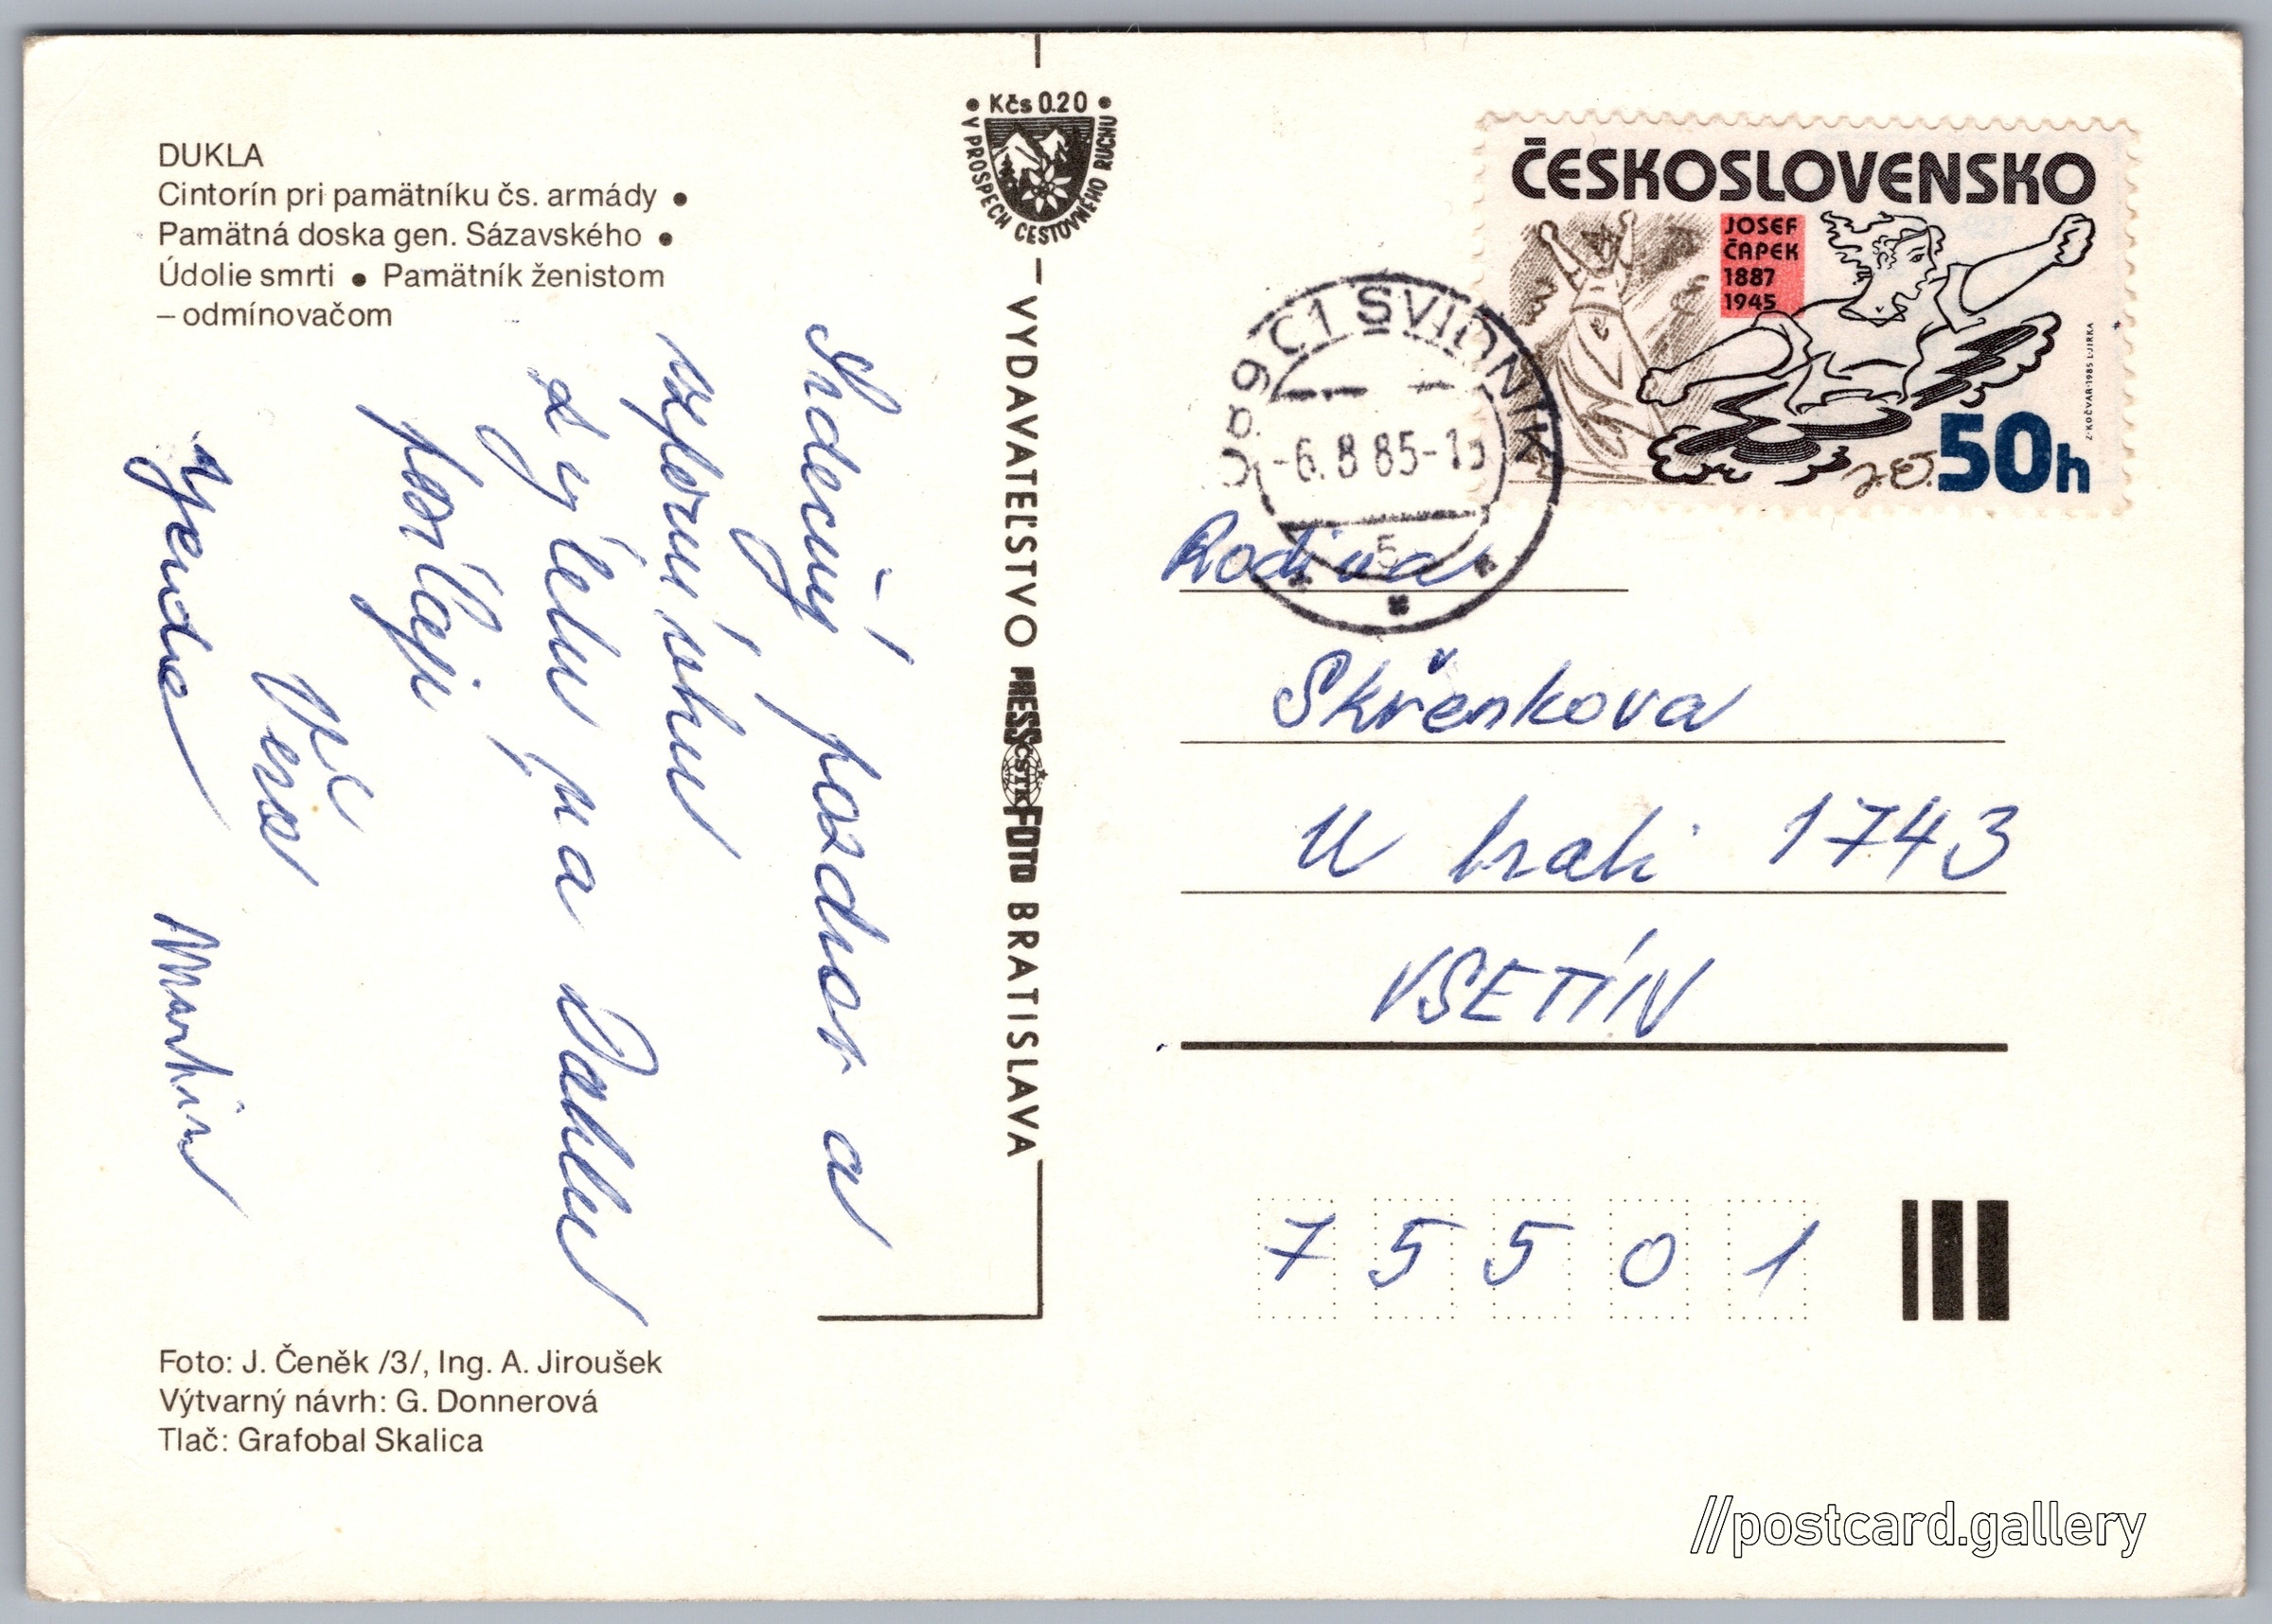 DUKLA
Cintorín pri pamätníku čs. armády •
Pamätná doska gen. Sázavského •
Údolie smrti • Pamätník ženistom
– odmínovačom
Srdečný pozdrav a
vzpomínku
z výletu na Duklu
posílají
Věra
Jenda Martin
Foto: J. Čeněk /3/, Ing. A. Jiroušek
Výtvarný návrh: G. Donnerová
Tlač: Grafobal Skalica
• Kčs 0.20 •
V PROSPECH CESTOVNÉHO RUCHU
– VYDAVATEĽSTVO PRESSFOTO BRATISLAVA
ČSTK
ČESKOSLOVENSKO
JOSEF
ČAPEK
1887
1945
J.Č. 50h
Z·KOČVAR·1985 L·JIRKA
089 01 SVIDNÍK
-6. 8 85-15
5
Rodina
Skřenkova
U trati 1743
VSETÍN
75501
//postcard.gallery